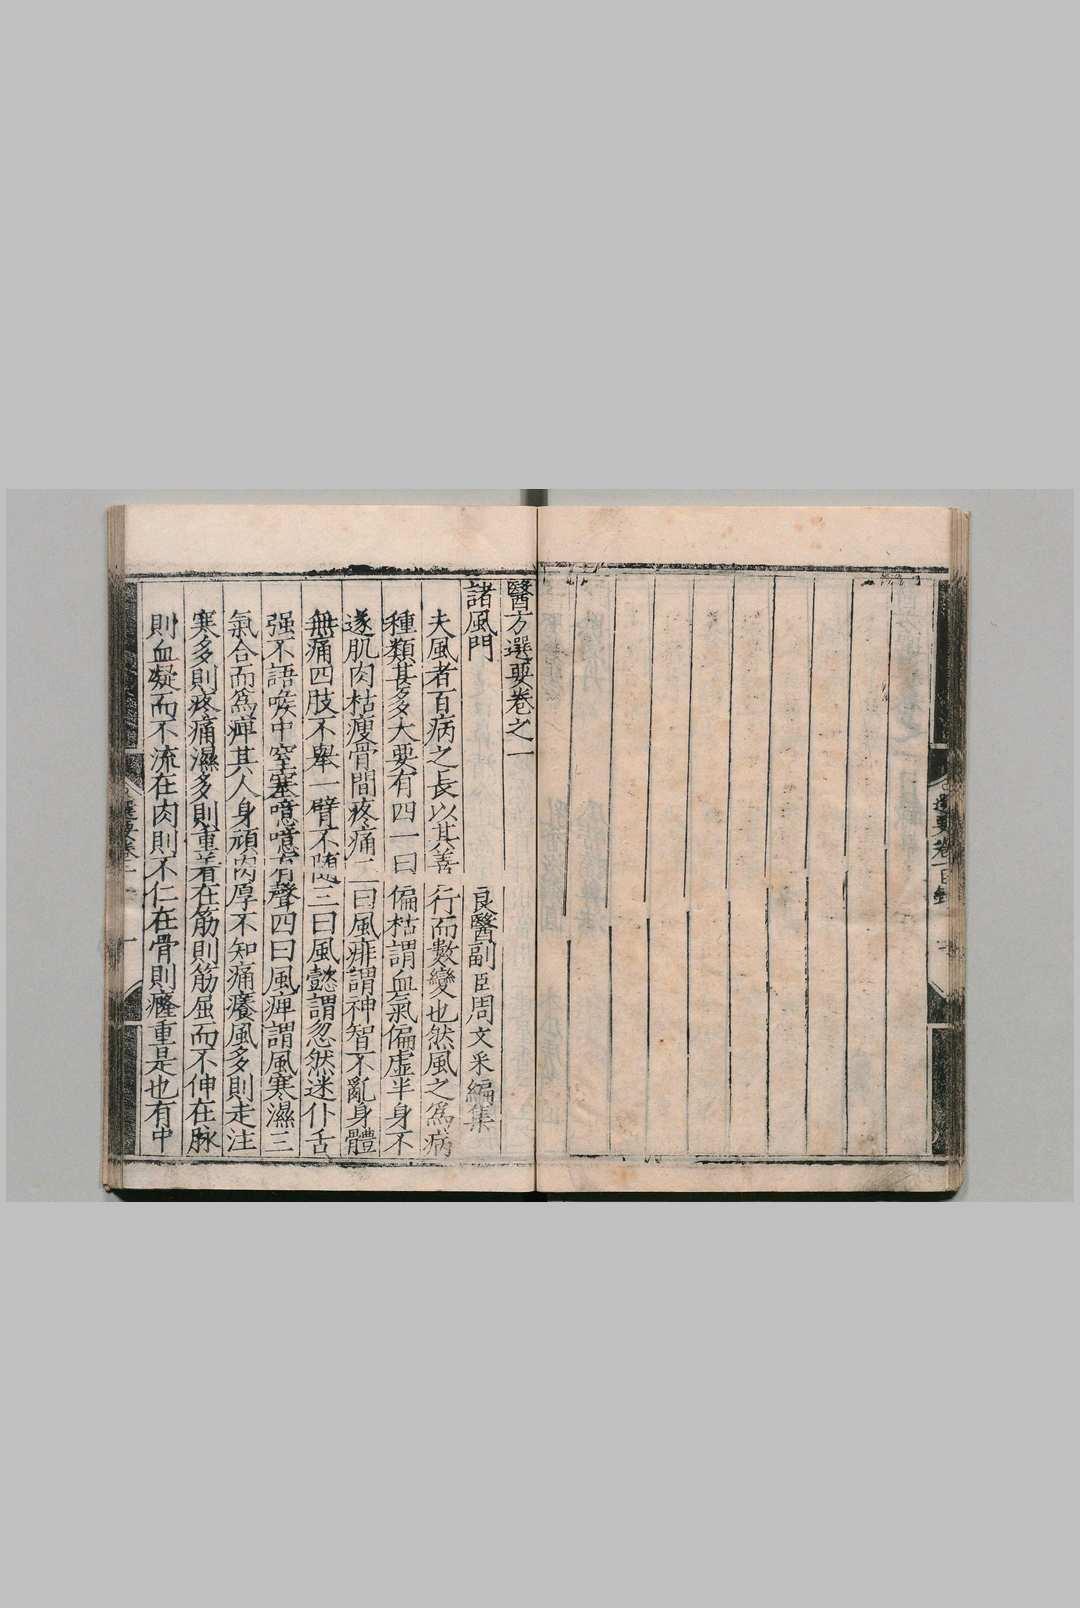 選要卷一目錄
醫方選要卷之一
良醫副臣周文采編集
諸風門
夫風者百病之長以其善行而數變也然風之爲病
種類甚多大要有四一曰偏枯謂血氣偏虛半身不
遂肌肉枯瘦骨間疼痛二曰風痱謂神智不亂身體
無痛四肢不舉一臂不随三曰風懿謂忽然迷仆舌
强不語喉中窒塞噫噫有聲四曰風痺謂風寒濕三
氣合而爲痺其人身頑肉厚不知痛癢風多則走注
寒多則疼痛濕多則重着在筋則筋屈而不伸在脉
則血凝而不流在肉則不仁在骨則癃重是也有中
選要卷一